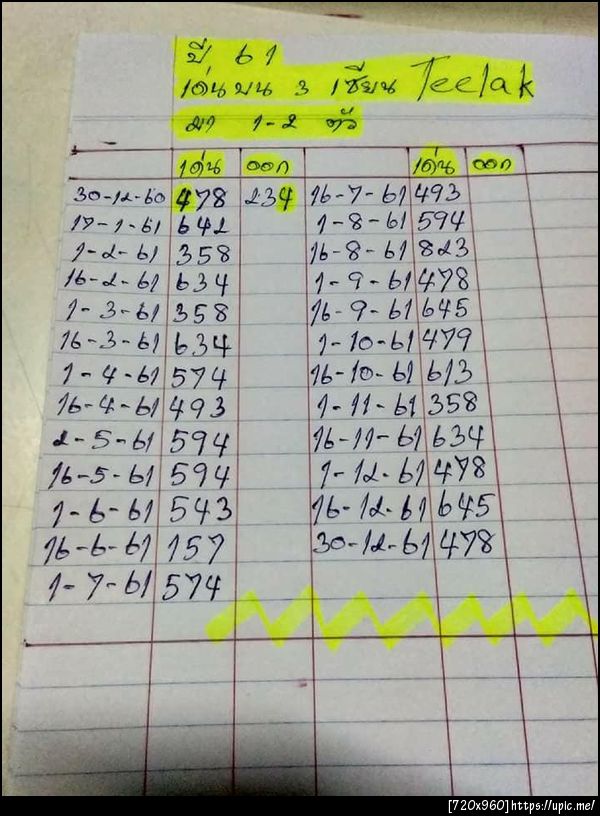 ปี 61
เด่นบน 3 เซียน Teelak
มา 1-2 ตัว
เด่น ออก เด่น ออก
30-12-60 478 234 16-7-61 493
17-1-61 642 1-8-61 594
1-2-61 358 16-8-61 823
16-2-61 634 1-9-61 478
1-3-61 358 16-9-61 645
16-3-61 634 1-10-61 479
1-4-61 574 16-10-61 613
16-4-61 493 1-11-61 358
2-5-61 594 16-11-61 634
16-5-61 594 1-12-61 478
1-6-61 543 16-12-61 645
16-6-61 157 30-12-61 478
1-7-61 574
[720x960]https://upic.me/